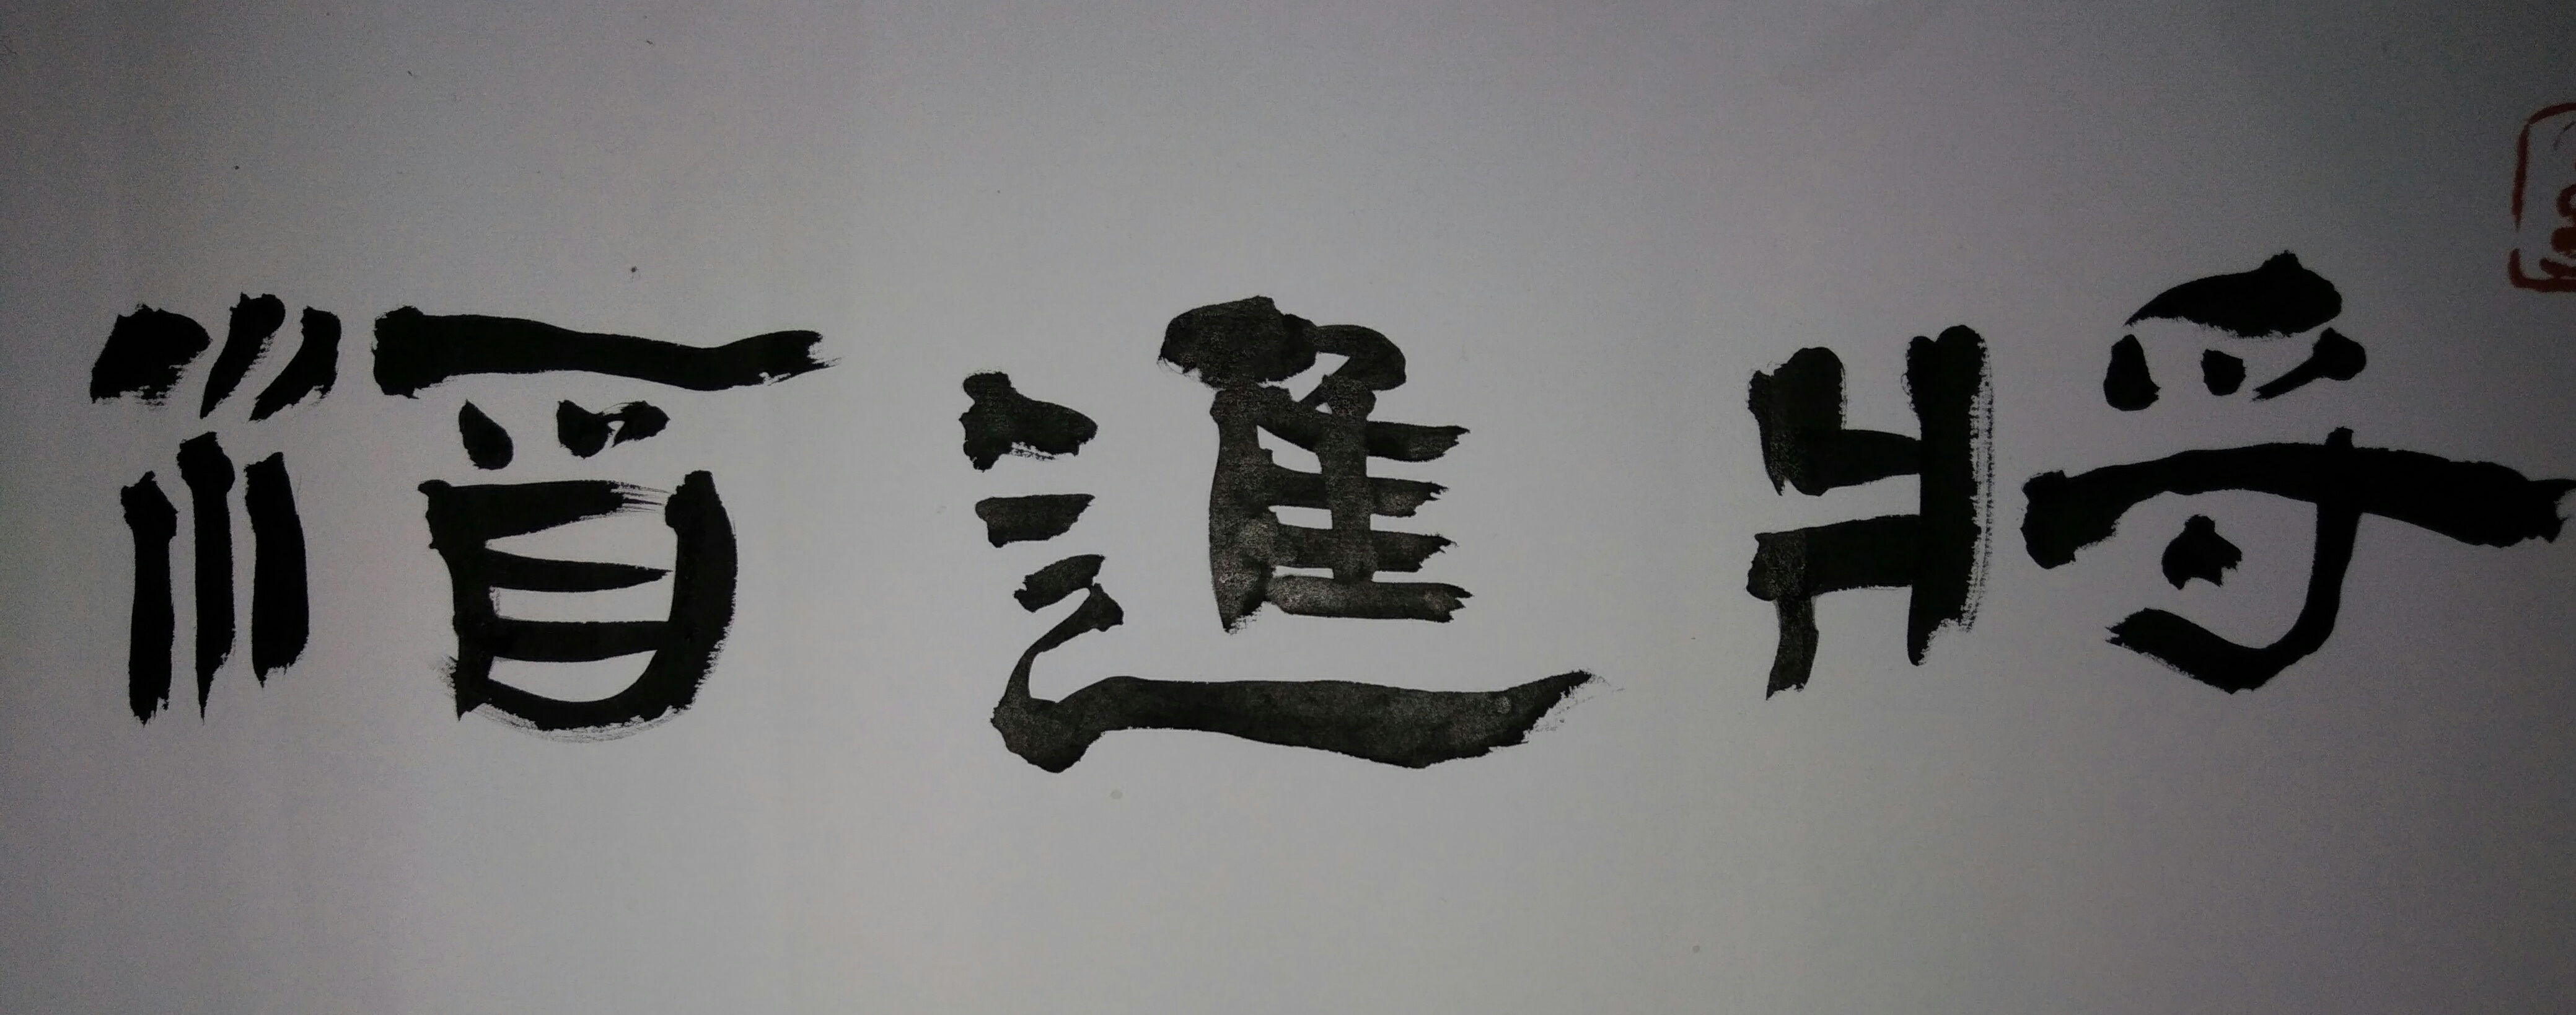 將進酒